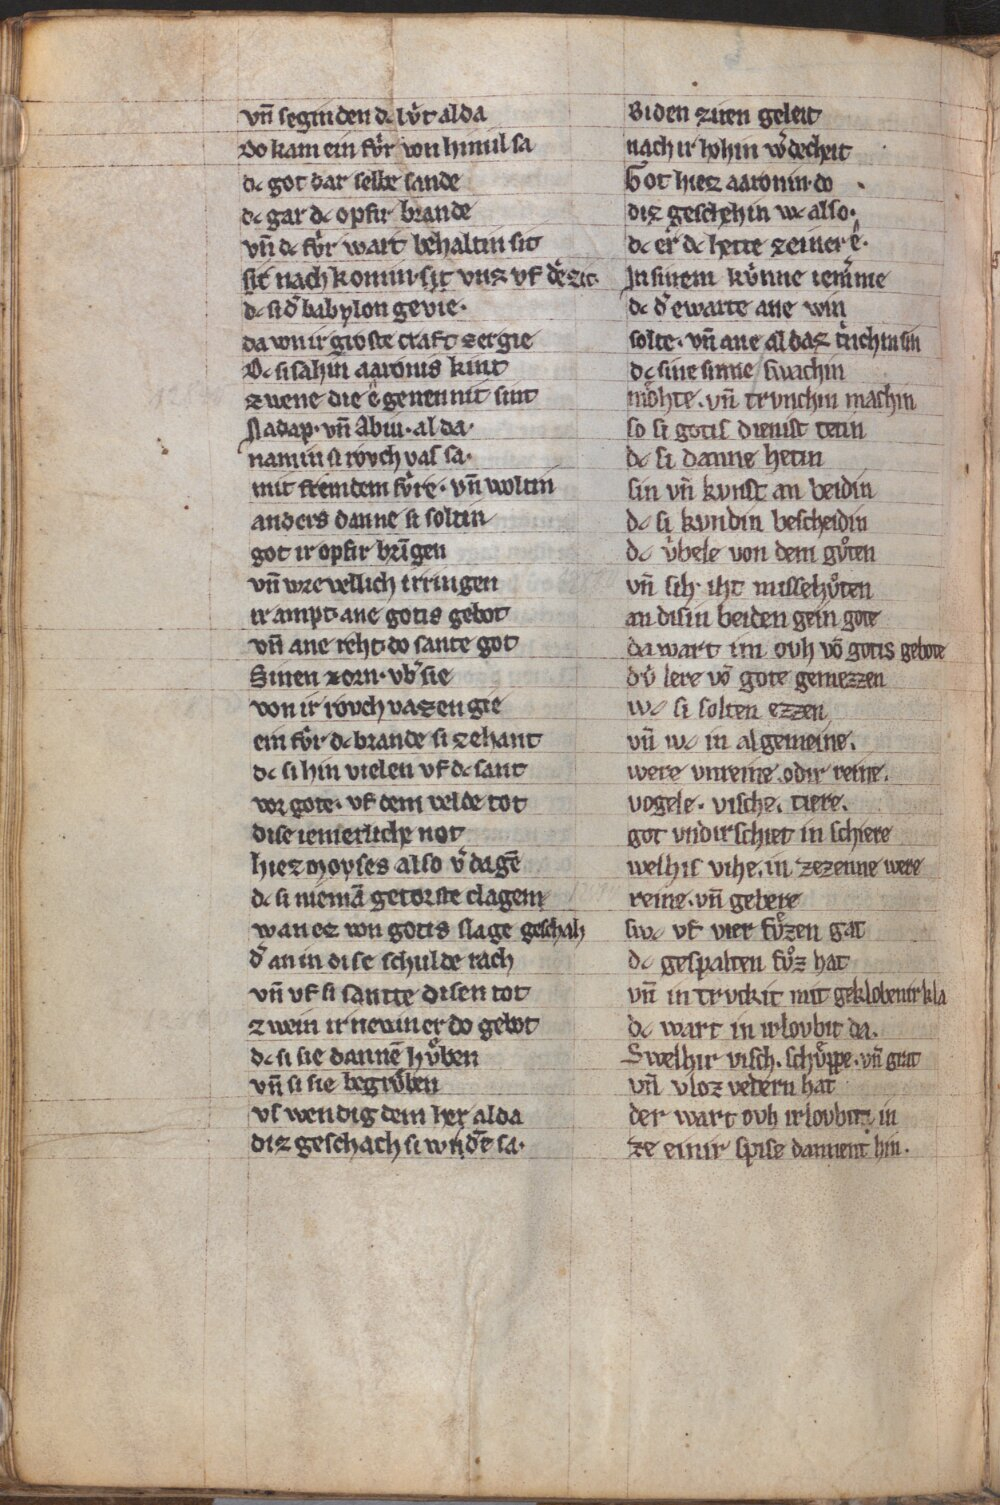 vn̄ seginden dc lv̂t alda
Do kam ein fv̂r von himil sa
dc got dar selbe sande
dc gar dc opfir brande
vn̄ dc fv̂r wart behaltin sit
sit nach komin·sit vnz vf die zit·
dc si d' babylon gevie·
da von ir groste craft zergie
Dc si sahin aaronis kint
zwene die ê genennit sint
Nadap· vn̄ Abiu· al da·
namin si rovch vas sa·
mit fremdem fv̂re· vn̄ woltin
anders danne si soltin
got ir opfir brīgen
vn̄ vrevellich irringen
ir ampt· ane gotis gebot
vn̄ ane reht· do sante got
Sinen zorn· vb' sie
von ir rovch vazen gie
ein fv̂r dc brande si zehant
dc si hin vielen vf dc sant
vor gote· vf dem velde tot
dise iemerliche not
hiez moyses also v'dagē
dc si niemā getorste clagem
wan ez von gotis slage geschah
d' an in dise schulde rach
vn̄ vf si santte disen tot
zwein ir nevin er do gebot
dc si sie dannē hv̊ben
vn̄ si sie begrv̊ben
vs wendig dem her al da
diz geschach si wrdē sa·
Biden ziten geleit
nach ir hohin w'decheit
Got hiez aaronin· do
diz geschehin wc also·
dc er dc hette zeiner ê·
In sinem kv̂nne iem'me
dc d' ewarte ane win
solte· vn̄ ane al daz trv̂chin sin
dc sine sinne swachin
mohte· vn̄ trvnchin machin
so si gotis dienist tetin
dc si danne hetin
sin vn̄ kvnst an beidin
dc si kvndin bescheidin
dc v̂bele von dem gv̊ten
vn̄ sih iht missehv̊ten
an disin beiden gein gote
da wart im ovh vō gotis gebote
dv̂ lere vō gote gemezzen
wc si solten ezzen
vn̄ wc in algemeine·
were vnreine· odir reine·
vogele· vische· tiere·
got vndirschiet in schiere
welhis vihe· in zezenne were
reine· vn̄ gebere
swc vf vier fv̊zen gat
dc gespalten fv̊z hat
vn̄ in trvckit mit geklobenir kla
dc wart in irlovbit da·
Swelhir visch· schv̊ppe· vn̄ grat
vn̄ vloz vedern hat
der wart ovh irlovbit in
ze einir spise dannent hin·